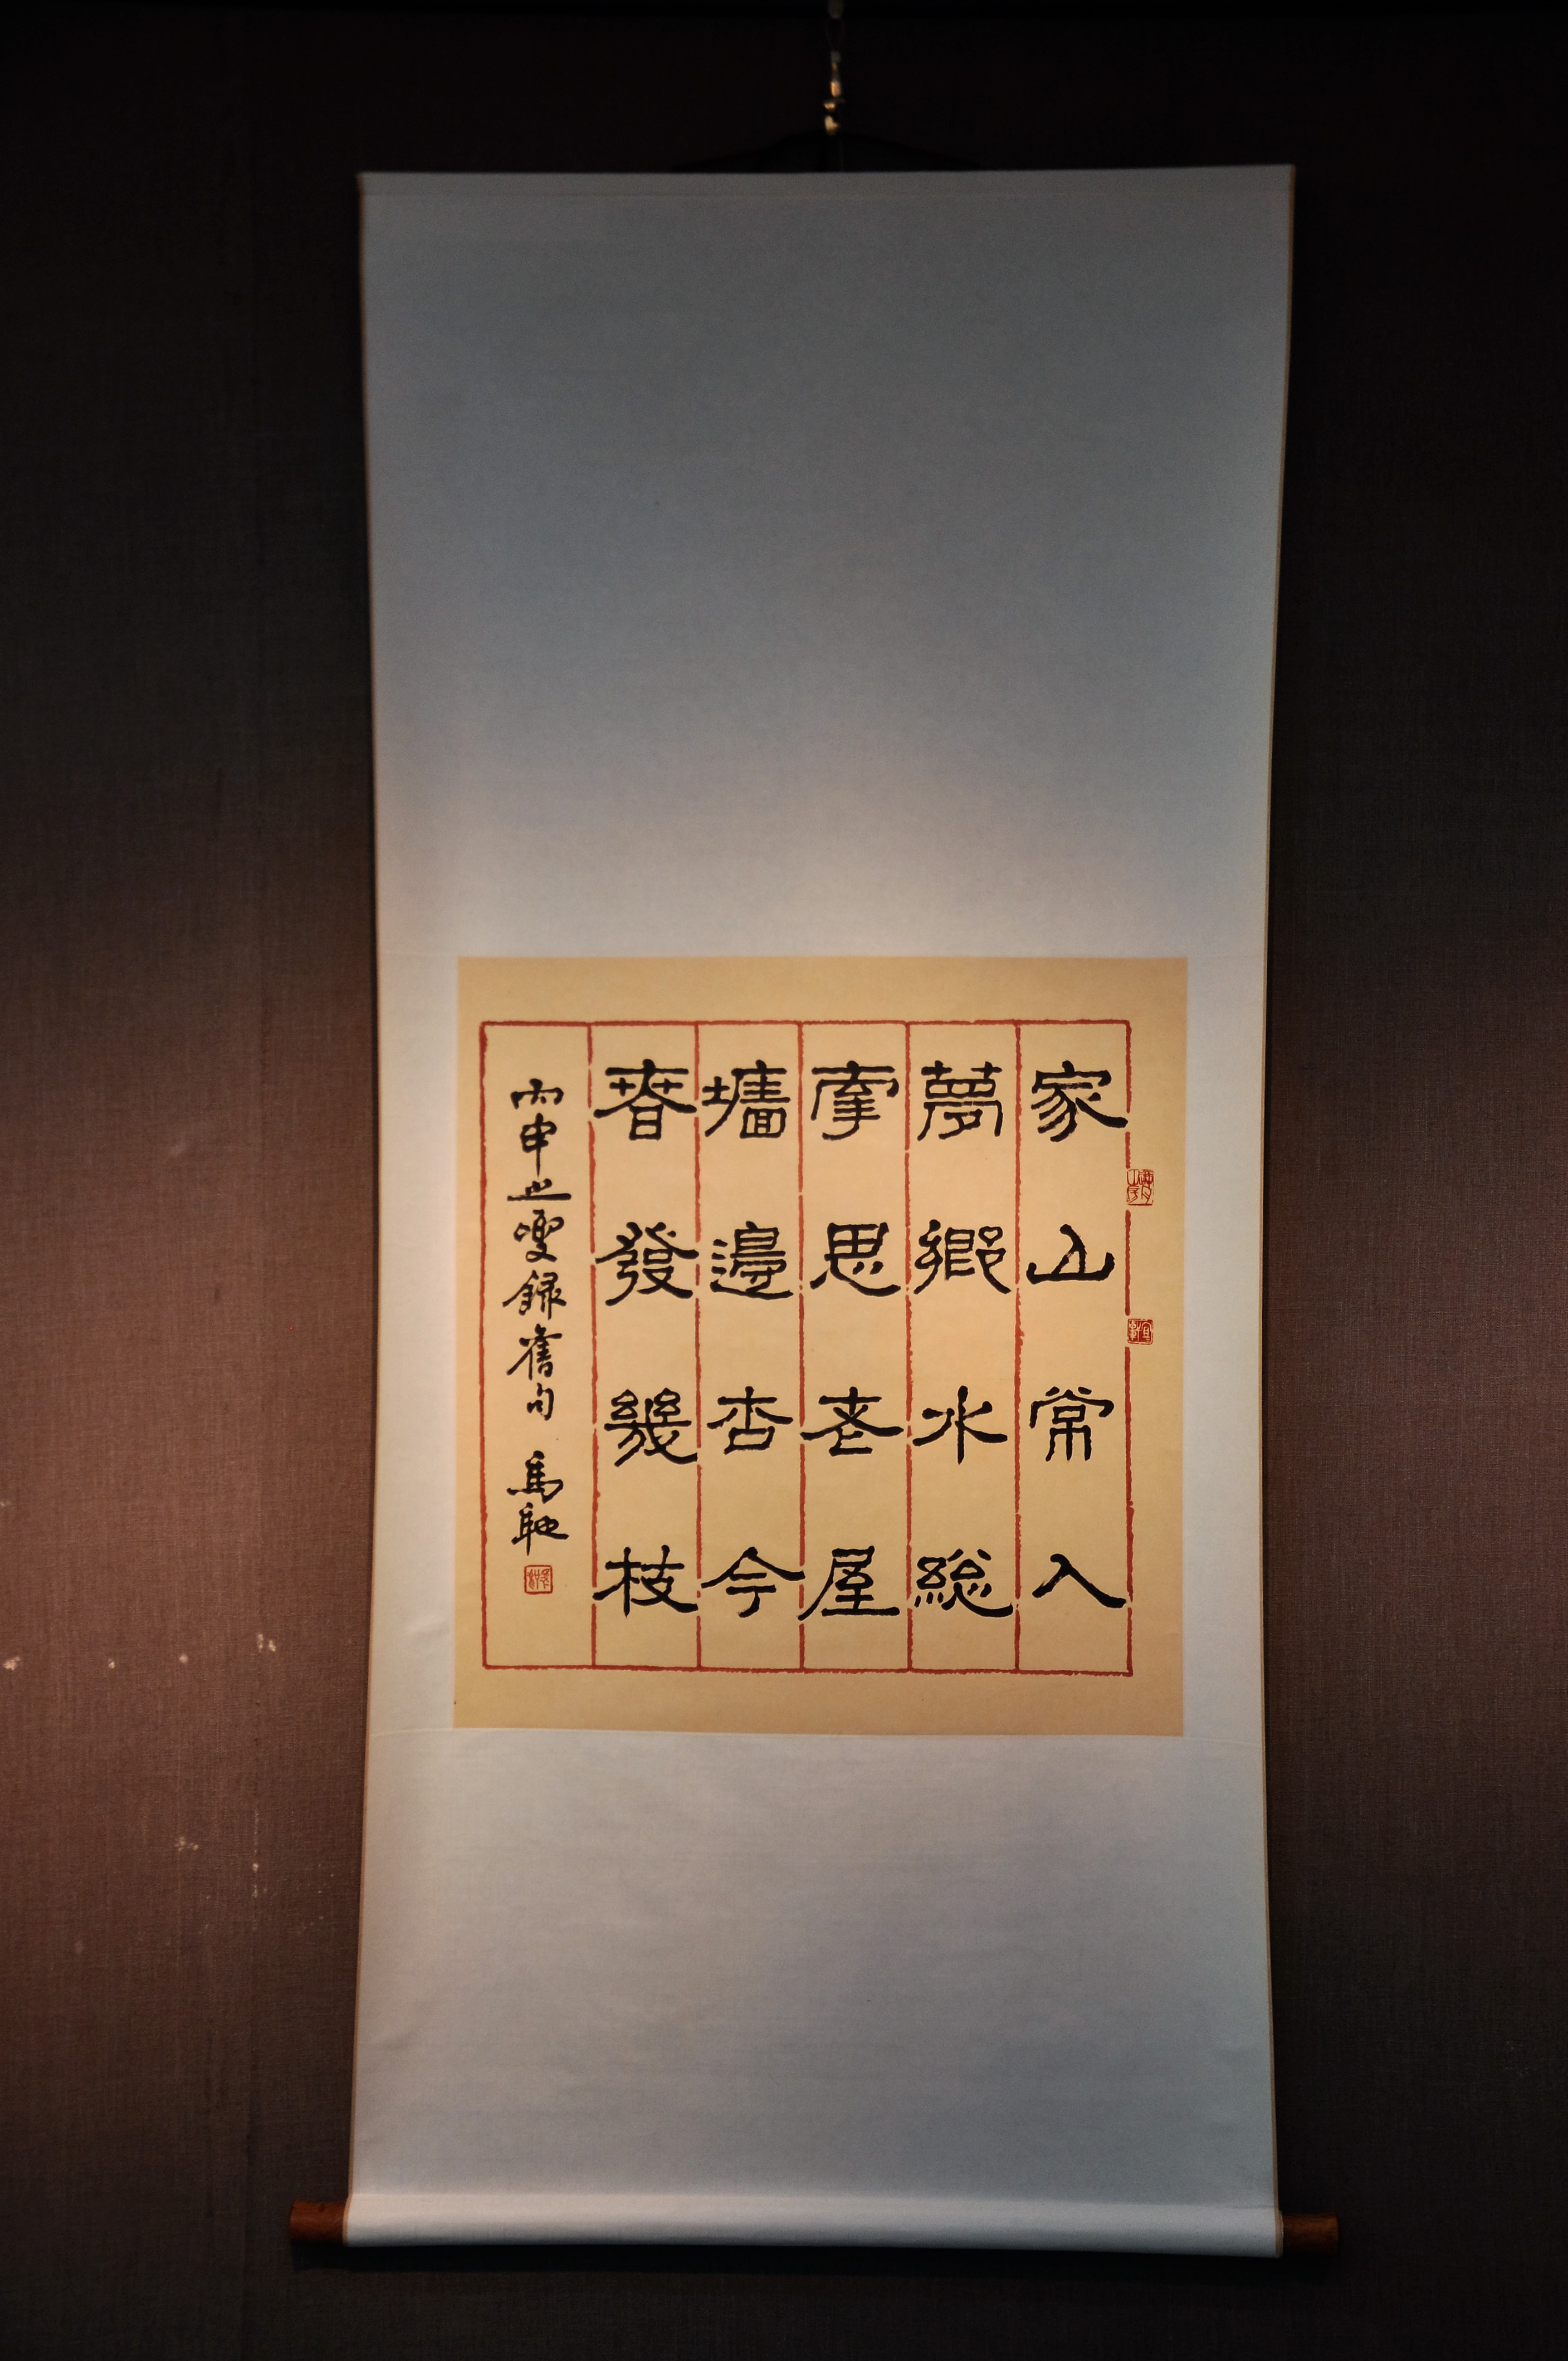 家山常入
夢鄉水總
牽思老屋
墻邊杏今
春發幾枝
丙申之夏錄舊句 馬馳